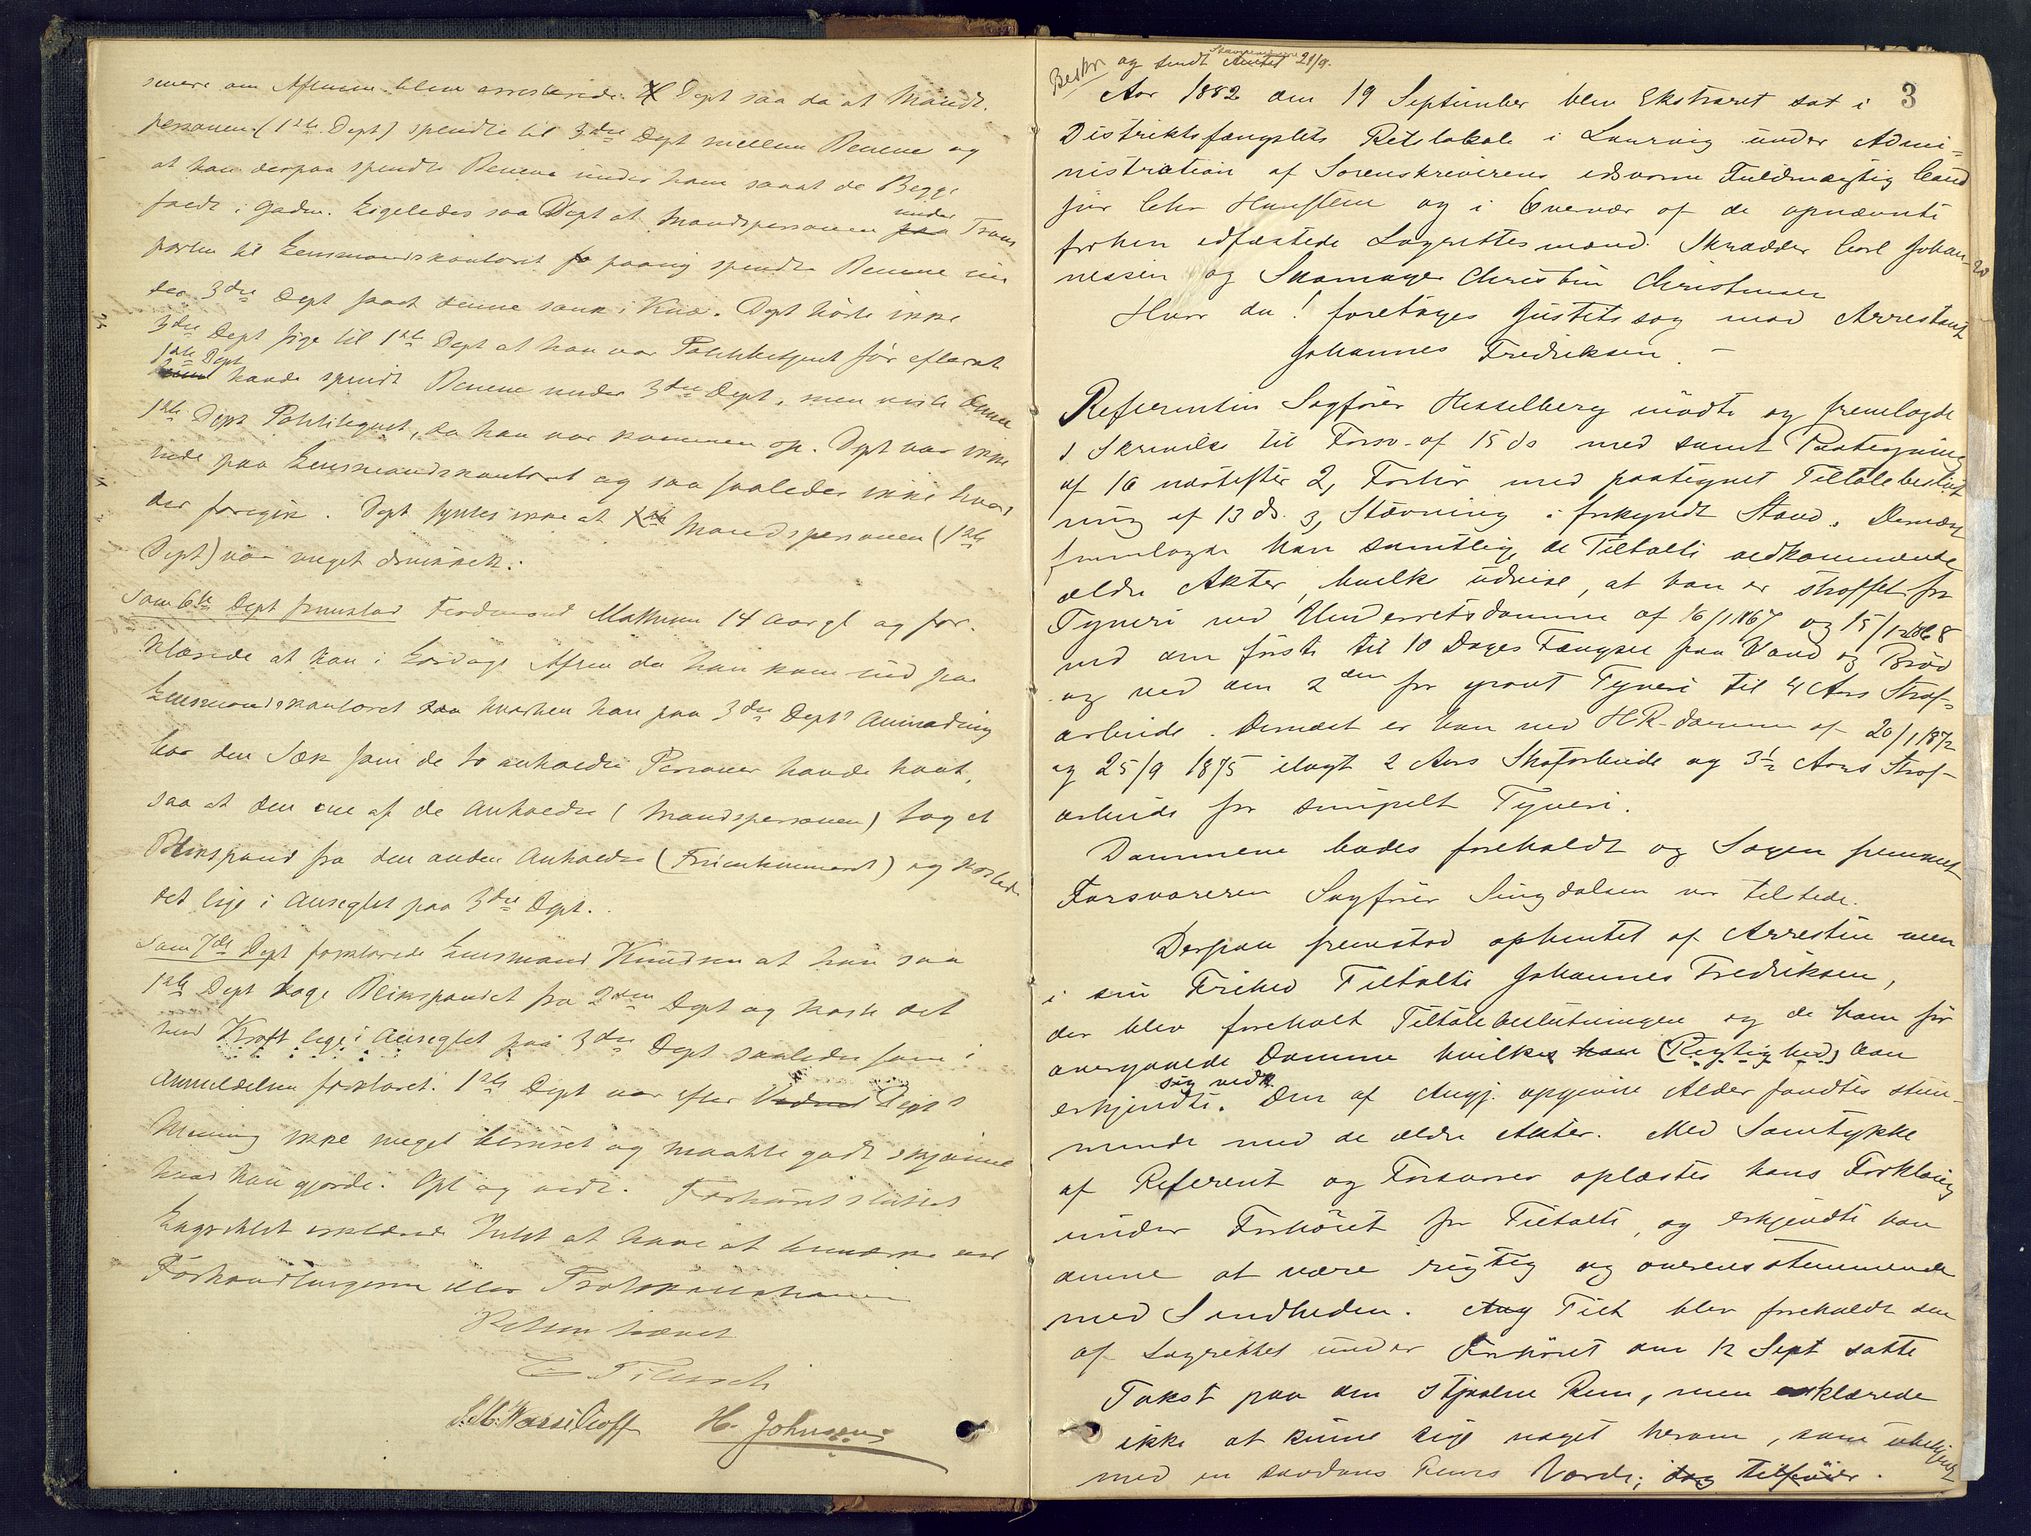 senere om Aftenen bleve arresterede. Dept saa da at Mands-
personen (1ste Dept) spendte til 3die Dept mellem Benene og
at han derpaa spendte Benene under ham saaat de Begge
faldt i Gaden. Ligeledes saa Dept at Mandspersonen under Trans
porten til Lensmandskontoret paany spendte Benene un
der 3die Dept saaat denne sank i Knæ. Dept hörte ikke
3die Dept sige til 1ste Dept at han var Politibetjent før efterat
1ste Dept havde spendt Benene under 3die Dept, men viste denne
1ste Dept Politilegnet, da han var kommen op. Dept var ikke
inde paa Lensmandskontoret og saa saaledes ikke hvad
der foregik. Dept syntes ikke at Mandspersonen (1ste
Dept) var meget drukken.
Som 6te Dept fremstod Ferdinand Mathisen 14 Aar gl og for-
klarede at han i Lørdags Aften da han kom ind paa
Lensmandskontoret hvorhen han paa 3die Depts Anmodning
bar den Sæk som de to anholdte Personer havde havt,
saa at den ene af de Anholdte (Mandspersonen) tog et
Blikspand fra den anden Anholdte (Fruentimmeret) og kastede
det lige i Ansigtet paa 3die Dept.
Som 7de Dept forklarede Lensmand Knudsen at han saa
1ste Dept tage Blikspandet fra 2den Dept og kaste det
med Kraft lige i Ansigtet paa 3die Dept saaledes som i
Anmeldelsen forklaret. 1ste Dept var efter Dept's
Mening ikke meget beruset og maatte godt skjønne
hvad han gjorde. Opl og vedt. Forhøret sluttet
Lagrettet erklærede Intet at have at bemærke ved
Forhandlingerne eller Protokollationen
Retten hævet
H. Johnsen
Beskr og sendt Amtet 21/9.
3
Aar 1882 den 19 September blev Ekstraret sat i
Distriktsfængslets Retslokale i Laurvig under Admi-
nistration af Sorenskriverens edsvorne Fuldmægtig Cand
jur Chr Hansteen og i Overvær af de opnævnte
forhen edfæstede Lagrettesmænd Skrædder Carl Johan-
nessen og Skomager Christen Christensen
Hvor da! foretoges Justitssag mod Arrestant
Johannes Fredriksen. –
Referenten Sagfører Hesselberg mødte og fremlagde
1 Skrivelse til Forsv. af 15 ds med samt Paategning
af 16 næstefter 2, Forhør med paategnet Tiltalebeslut
ning af 13 ds. 3, Stævning i forkyndt Stand. Dernæst
fremlagde han samtlige de Tiltalte vedkommende
ældre Akter, hvilke udvise, at han er straffet for
Tyveri ved Underretsdomme af 16/1 1867 og 15/12 1868
ved den første til 10 Dages Fængsel paa Vand og Brød
og ved den 2den for grovt Tyveri til 4 Aars Straf-
arbeide. Dernæst er han ved H.R. domme af 20/1 1872
og 25/9 1875 ilagt 2 Aars Strafarbeide og 3½ Aars Straf-
arbeide for simpelt Tyveri.
Dommene bades foreholdt og Sagen fremmet
Forsvareren Sagfører Singdalsen var tilstede.
Derpaa fremstod afhentet af Arresten men
i sin Frihed Tiltalte Johannes Fredriksen,
der blev foreholdt Tiltalebeslutningen og de ham før
overgaaede Domme hvilkes Rigtighed han
erkjendte sig vedk. Den af Angj. opgivne Alder fandtes stem-
mende med de ældre Akter. Med Samtykke
af Referent og Forsvarer oplæstes hans Forklaring
under Forhøret for Tiltalte, og erkjendte han
denne at være rigtig og overensstemmende
med Sandheden. Tilt blev foreholdt den
af Lagrettet under Forhøret den 12 Sept satte
Takst paa den stjaalne Rem, men erklærede
ikke at kunne sige noget herom, som ubekjendt
med en saadans Rems Værdi; dog tilføier.